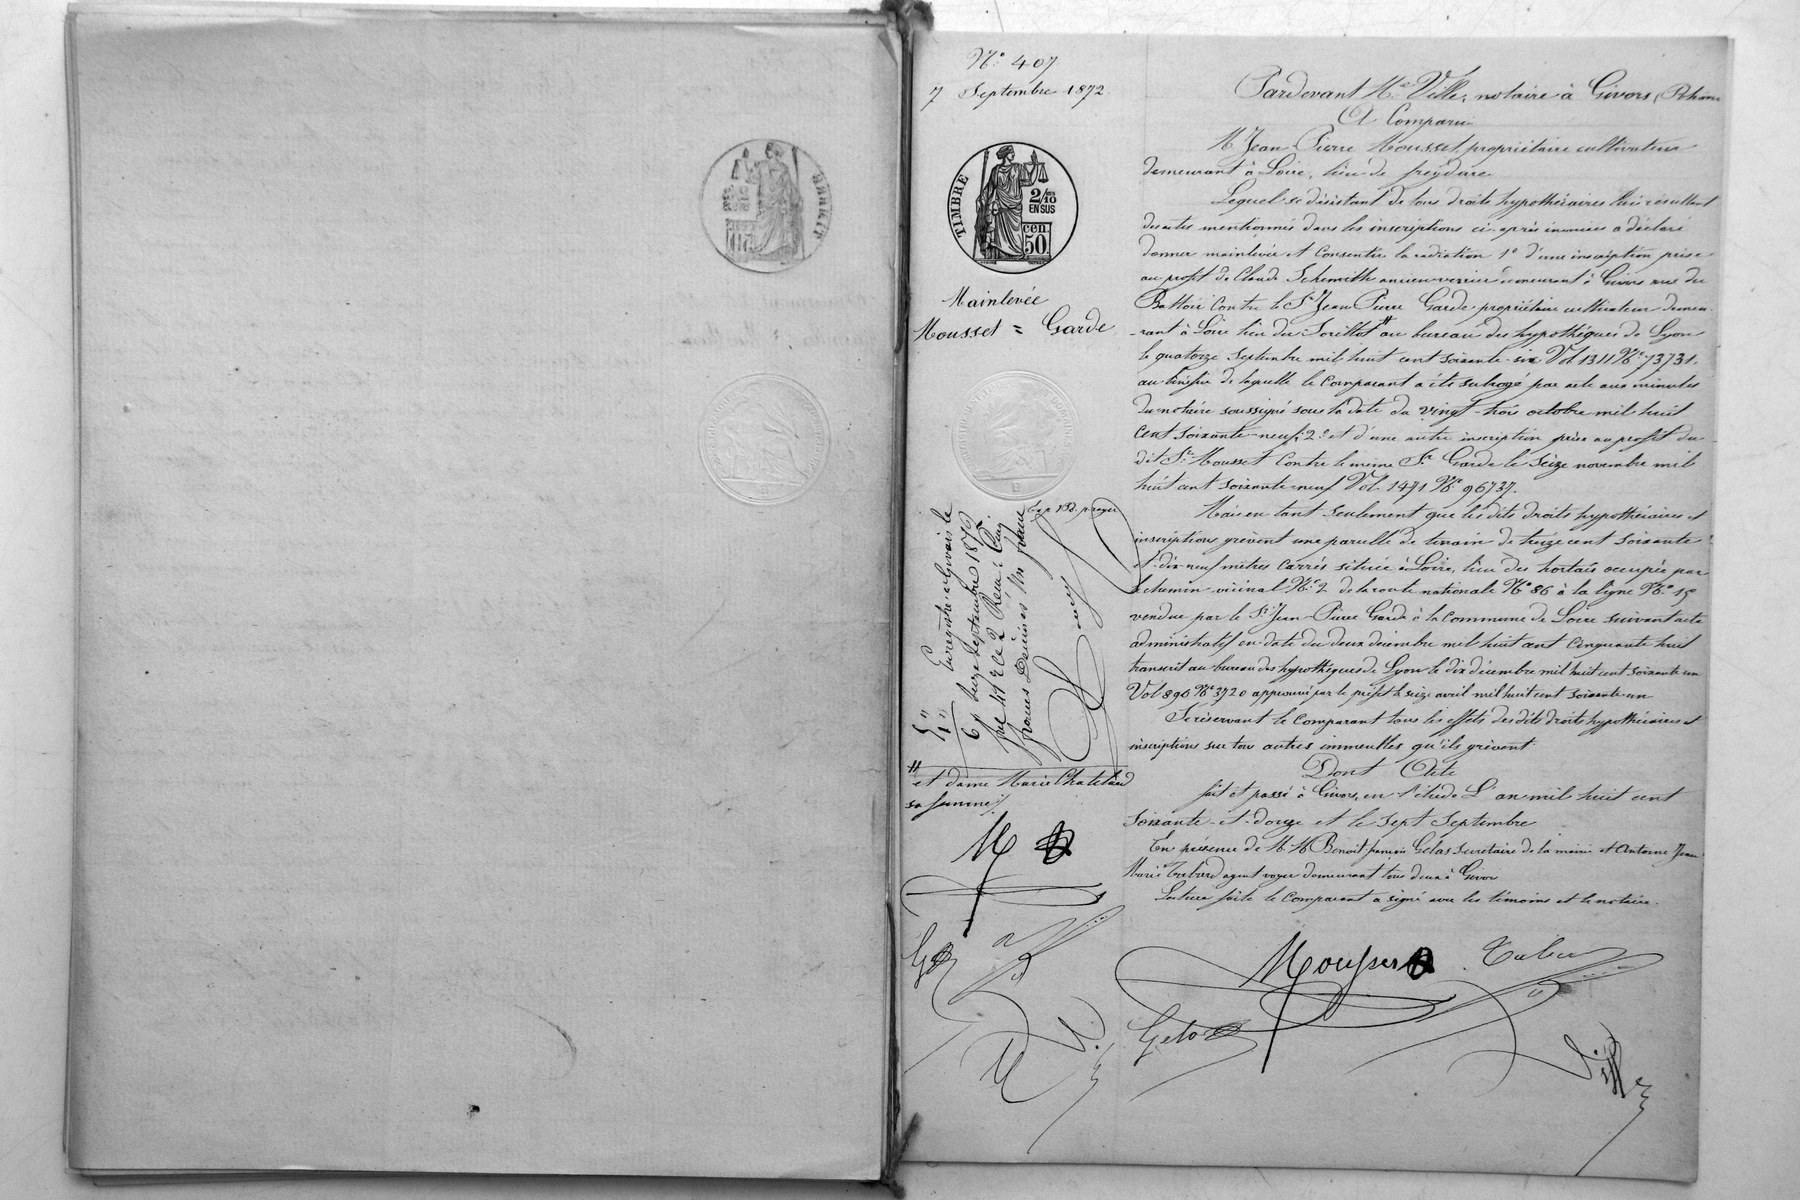 N° 407
7 Septembre 1872
TIMBRE
2/10
EN SUS
cen.
50
Mainlevée
Mousset = Garde
Pardevant Me Ville, notaire à Givors, Rhône
A Comparu
M Jean Pierre Mousset, propriétaire cultivateur
demeurant à Loire, lieu de
Lequel se désistant de tous droits hypothécaires lui résultant
des actes mentionnés dans les inscriptions ci-après énoncées a déclaré
donner mainlevée et consentir la radiation 1° d'une inscription prise
au profit de Claude ancien verrier demeurant à Givors rue du
Battoir contre le Sr Jean Pierre Garde propriétaire cultivateur demeu-
-rant à Loire lieu du # au bureau des hypothèques de Lyon
le quatorze septembre mil huit cent soixante-six Vol 1311 No 73731.
au bénéfice de laquelle le comparant a été subrogé par acte aux minutes
du notaire soussigné sous la date du vingt-trois octobre mil huit
cent soixante-neuf; 2° et d'une autre inscription prise au profit du
dit Sr Mousset contre le même Sr Garde le seize novembre mil
huit cent soixante-neuf Vol. 1471 No 96737.
Mais en tant seulement que les dits droits hypothécaires et
inscriptions grèvent une parcelle de terrain de treize cent soixante
et dix-neuf mètres carrés située à Loire, lieu des hortais occupée par
le chemin vicinal No 2 de la route nationale No 86 à la ligne No 15
vendue par le Sr Jean-Pierre Garde à la Commune de Loire suivant acte
administratif en date du deux décembre mil huit cent cinquante huit
transcrit au bureau des hypothèques de Lyon le dix décembre mil huit cent soixante un
Vol 896 No 3720 approuvé par le préfet le seize avril mil huit cent soixante-un
Se réservant le comparant tous les effets des dits droits hypothécaires et
inscriptions sur tous autres immeubles qu'ils grèvent.
Dont Acte
fait et passé à Givors, en l'étude L'an mil huit cent
soixante-et-douze et le sept septembre
En présence de M. M. Benoit françois Gelas secrétaire de la mairie et Antoine Jean
Marie agent voyer demeurant tous deux à Givors
Lecture faite le comparant a signé avec les témoins et le notaire.
Enregistré à Givors le
septembre 1872
# et dame Marie Chatelard
sa femme/.
M
Mousset
Gelas
Ville